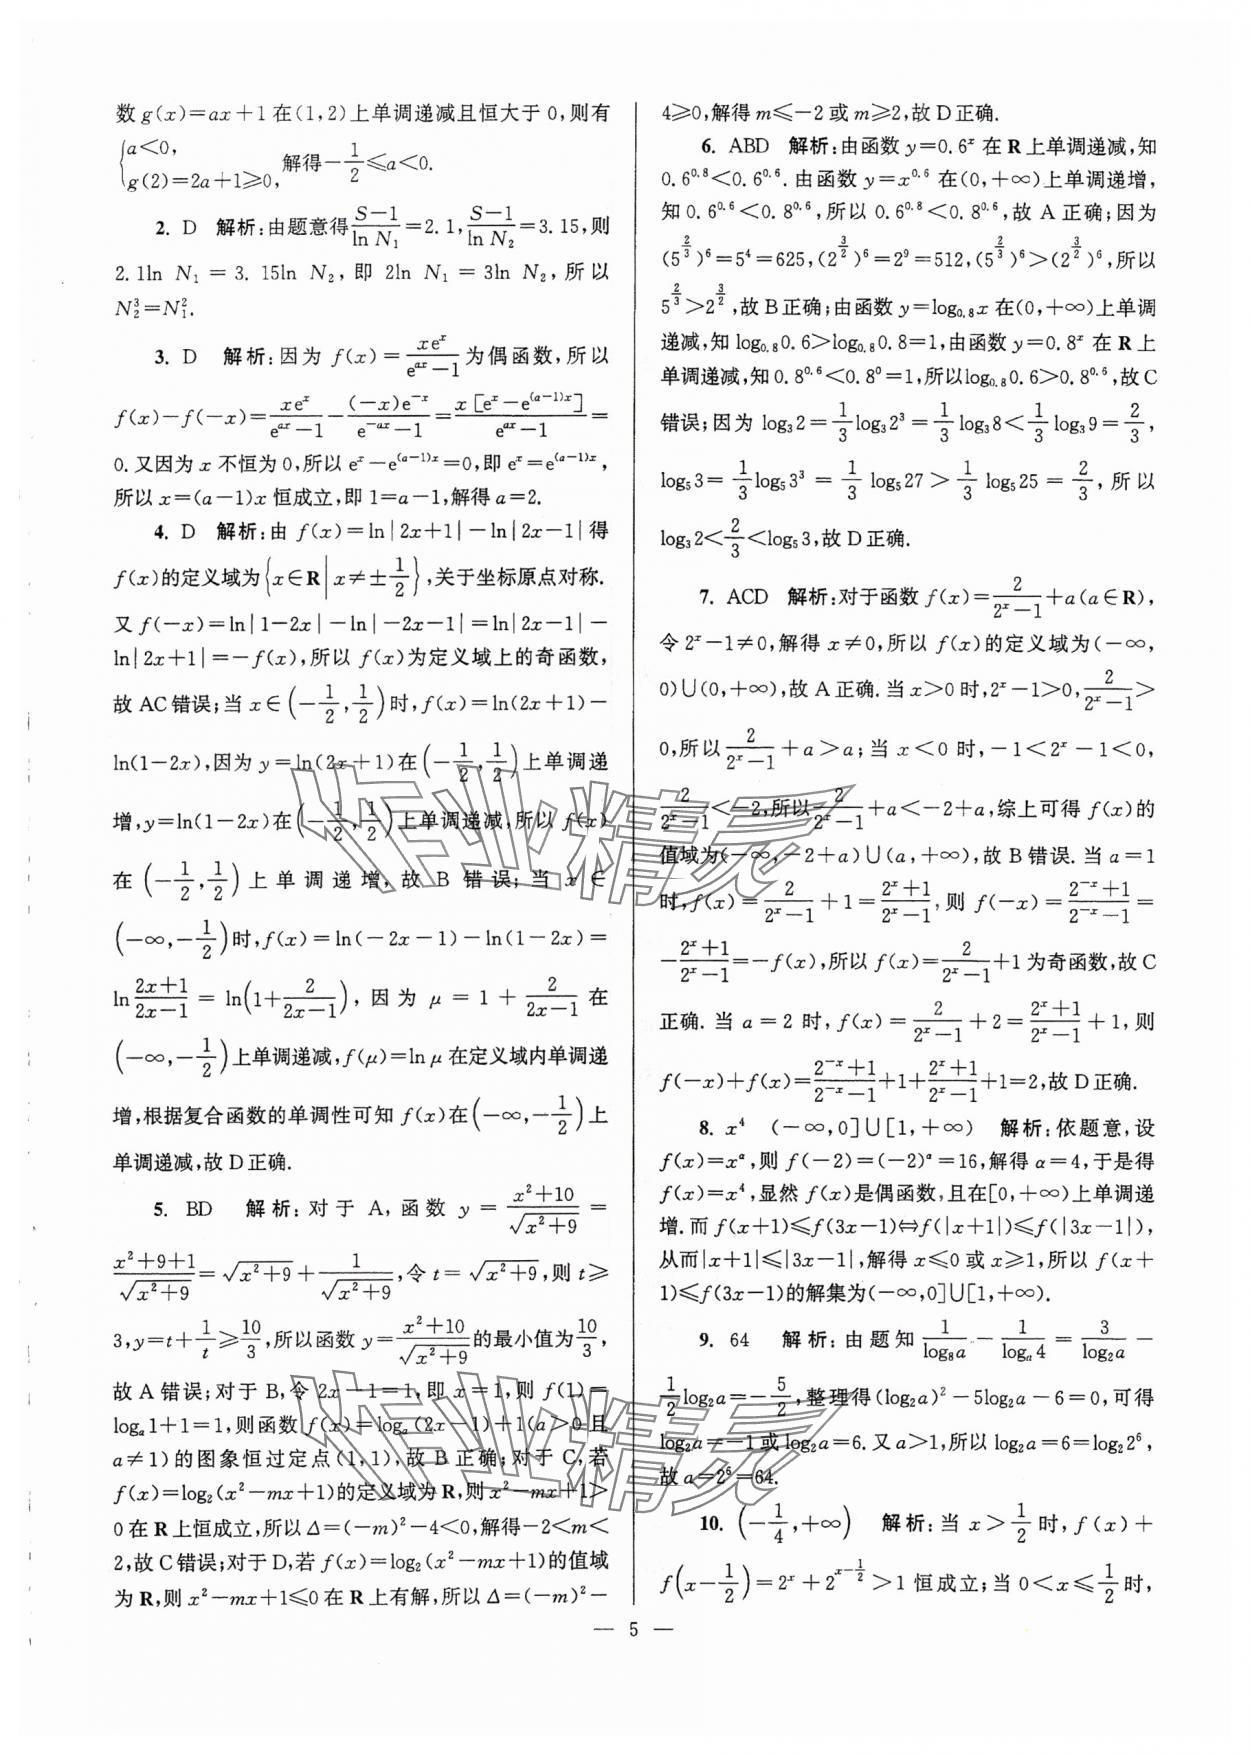 数 g(x)=ax+1 在(1,2)上单调递减且恒大于 0,则有
{a<0, g(2)=2a+1≥0, 解得-1/2≤a<0.
2. D 解析:由题意得(S-1)/(ln N₁)=2.1,(S-1)/(ln N₂)=3.15,则
2.1ln N₁ = 3.15ln N₂,即 2ln N₁ = 3ln N₂,所以
N₂³=N₁².
3. D 解析:因为 f(x)=xeˣ/(eᵃˣ-1)为偶函数,所以
f(x)-f(-x)=xeˣ/(eᵃˣ-1)-(-x)e⁻ˣ/(e⁻ᵃˣ-1)=x[eˣ-e^((a-1)x)]/(eᵃˣ-1)=
0.又因为 x 不恒为 0,所以 eˣ-e^((a-1)x)=0,即 eˣ=e^((a-1)x),
所以 x=(a-1)x 恒成立,即 1=a-1,解得 a=2.
4. D 解析:由 f(x)=ln|2x+1|-ln|2x-1|得
f(x)的定义域为{x∈R|x≠±1/2},关于坐标原点对称.
又 f(-x)=ln|1-2x|-ln|-2x-1|=ln|2x-1|-
ln|2x+1|=-f(x),所以 f(x)为定义域上的奇函数,
故 AC 错误;当 x∈(-1/2,1/2)时,f(x)=ln(2x+1)-
ln(1-2x),因为 y=ln(2x+1)在(-1/2,1/2)上单调递
增,y=ln(1-2x)在(-1/2,1/2)上单调递减,所以 f(x)
在(-1/2,1/2)上单调递增,故 B 错误;当 x∈
(-∞,-1/2)时,f(x)=ln(-2x-1)-ln(1-2x)=
ln (2x+1)/(2x-1) = ln(1+2/(2x-1)),因为 μ=1+2/(2x-1)在
(-∞,-1/2)上单调递减,f(μ)=ln μ 在定义域内单调递
增,根据复合函数的单调性可知 f(x)在(-∞,-1/2)上
单调递减,故 D 正确.
5. BD 解析:对于 A,函数 y=(x²+10)/√(x²+9)=
(x²+9+1)/√(x²+9)=√(x²+9)+1/√(x²+9),令 t=√(x²+9),则 t≥
3,y=t+1/t≥10/3,所以函数 y=(x²+10)/√(x²+9)的最小值为10/3,
故 A 错误;对于 B,令 2x-1=1,即 x=1,则 f(1)=
logₐ1+1=1,则函数 f(x)=logₐ(2x-1)+1(a>0 且
a≠1)的图象恒过定点(1,1),故 B 正确;对于 C,若
f(x)=log₂(x²-mx+1)的定义域为 R,则 x²-mx+1>
0 在 R 上恒成立,所以 Δ=(-m)²-4<0,解得-2<m<
2,故 C 错误;对于 D,若 f(x)=log₂(x²-mx+1)的值域
为 R,则 x²-mx+1≤0 在 R 上有解,所以 Δ=(-m)²-
4≥0,解得 m≤-2 或 m≥2,故 D 正确.
6. ABD 解析:由函数 y=0.6ˣ 在 R 上单调递减,知
0.6^0.8<0.6^0.6.由函数 y=x^0.6 在(0,+∞)上单调递增,
知 0.6^0.6<0.8^0.6,所以 0.6^0.8<0.8^0.6,故 A 正确;因为
(5^(2/3))⁶=5⁴=625,(2^(3/2))⁶=2⁹=512,(5^(2/3))⁶>(2^(3/2))⁶,所以
5^(2/3)>2^(3/2),故 B 正确;由函数 y=log₀.₈x 在(0,+∞)上单调
递减,知 log₀.₈0.6>log₀.₈0.8=1,由函数 y=0.8ˣ 在 R 上
单调递减,知 0.8^0.6<0.8⁰=1,所以log₀.₈0.6>0.8^0.6,故 C
错误;因为 log₃2=1/3 log₃2³=1/3 log₃8<1/3 log₃9=2/3,
log₅3=1/3 log₅3³=1/3 log₅27>1/3 log₅25=2/3,所以
log₃2<2/3<log₅3,故 D 正确.
7. ACD 解析:对于函数 f(x)=2/(2ˣ-1)+a(a∈R),
令 2ˣ-1≠0,解得 x≠0,所以 f(x)的定义域为(-∞,
0)∪(0,+∞),故 A 正确.当 x>0 时,2ˣ-1>0,2/(2ˣ-1)>
0,所以 2/(2ˣ-1)+a>a;当 x<0 时,-1<2ˣ-1<0,
2/(2ˣ-1)<-2,所以 2/(2ˣ-1)+a<-2+a,综上可得 f(x)的
值域为(-∞,-2+a)∪(a,+∞),故 B 错误.当 a=1
时,f(x)=2/(2ˣ-1)+1=(2ˣ+1)/(2ˣ-1),则 f(-x)=(2⁻ˣ+1)/(2⁻ˣ-1)=
-(2ˣ+1)/(2ˣ-1)=-f(x),所以 f(x)=2/(2ˣ-1)+1 为奇函数,故 C
正确.当 a=2 时,f(x)=2/(2ˣ-1)+2=(2ˣ+1)/(2ˣ-1)+1,则
f(-x)+f(x)=(2⁻ˣ+1)/(2⁻ˣ-1)+1+(2ˣ+1)/(2ˣ-1)+1=2,故 D 正确.
8. x⁴ (-∞,0]∪[1,+∞) 解析:依题意,设
f(x)=x^α,则 f(-2)=(-2)^α=16,解得 α=4,于是得
f(x)=x⁴,显然 f(x)是偶函数,且在[0,+∞)上单调递
增.而 f(x+1)≤f(3x-1)⇔f(|x+1|)≤f(|3x-1|),
从而|x+1|≤|3x-1|,解得 x≤0 或 x≥1,所以 f(x+
1)≤f(3x-1)的解集为(-∞,0]∪[1,+∞).
9. 64 解析:由题知 1/log₈a-1/logₐ4=3/log₂a-
1/2 log₂a=-5/2,整理得(log₂a)²-5log₂a-6=0,可得
log₂a=-1或log₂a=6.又 a>1,所以 log₂a=6=log₂2⁶,
故 a=2⁶=64.
10. (-1/4,+∞) 解析:当 x>1/2 时,f(x)+
f(x-1/2)=2ˣ+2^(x-1/2)>1 恒成立;当 0<x≤1/2 时,
— 5 —
作业精灵
作业精灵